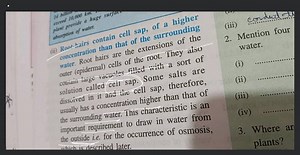 plant provide a huge surface
absorption of water.
(ii) Root hairs contain cell sap, of a higher
concentration than that of the surrounding
water. Root hairs are the extensions of the
outer (epidermal) cells of the root. They also
contain large vacuoles filled with a sort of
solution called cell sap. Some salts are
dissolved in it and the cell sap, therefore,
usually has a concentration higher than that of
the surrounding water. This characteristic is an
important requirement to draw in water from
the outside i.e. for the occurrence of osmosis,
which is described later.
(iii)
2. Mention four
water.
(i)
(ii)
(iii)
(iv)
3. Where ar
plants?